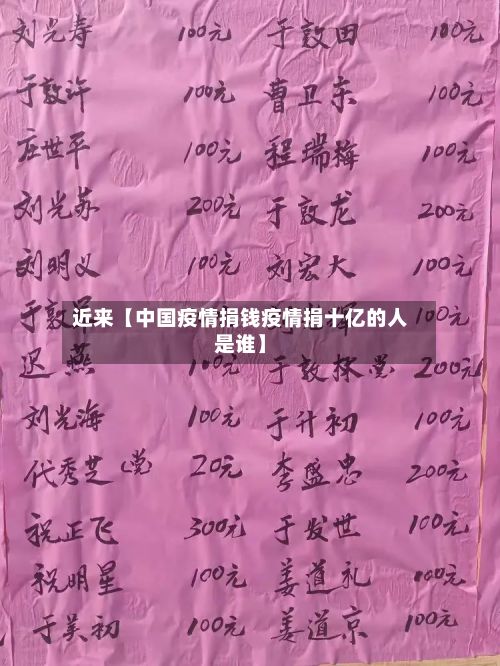 刘光寿 100元 于敦田 100元
于敦许 100元 曹卫东 100元
庄世平 100元 程瑞梅 100元
刘光苏 200元 于敦龙 200元
刘明义 100元 刘宏大 100元
于敦 100元
近来【中国疫情捐钱疫情捐十亿的人
是谁】
迟燕 100元 于敦林 党 200元
刘光海 100元 于升初 100元
代秀芝(党) 20元 李盛忠 200元
祝正飞 300元 于发世 100元
祝明星 100元 姜道礼 100元
于美初 100元 姜道京 100元